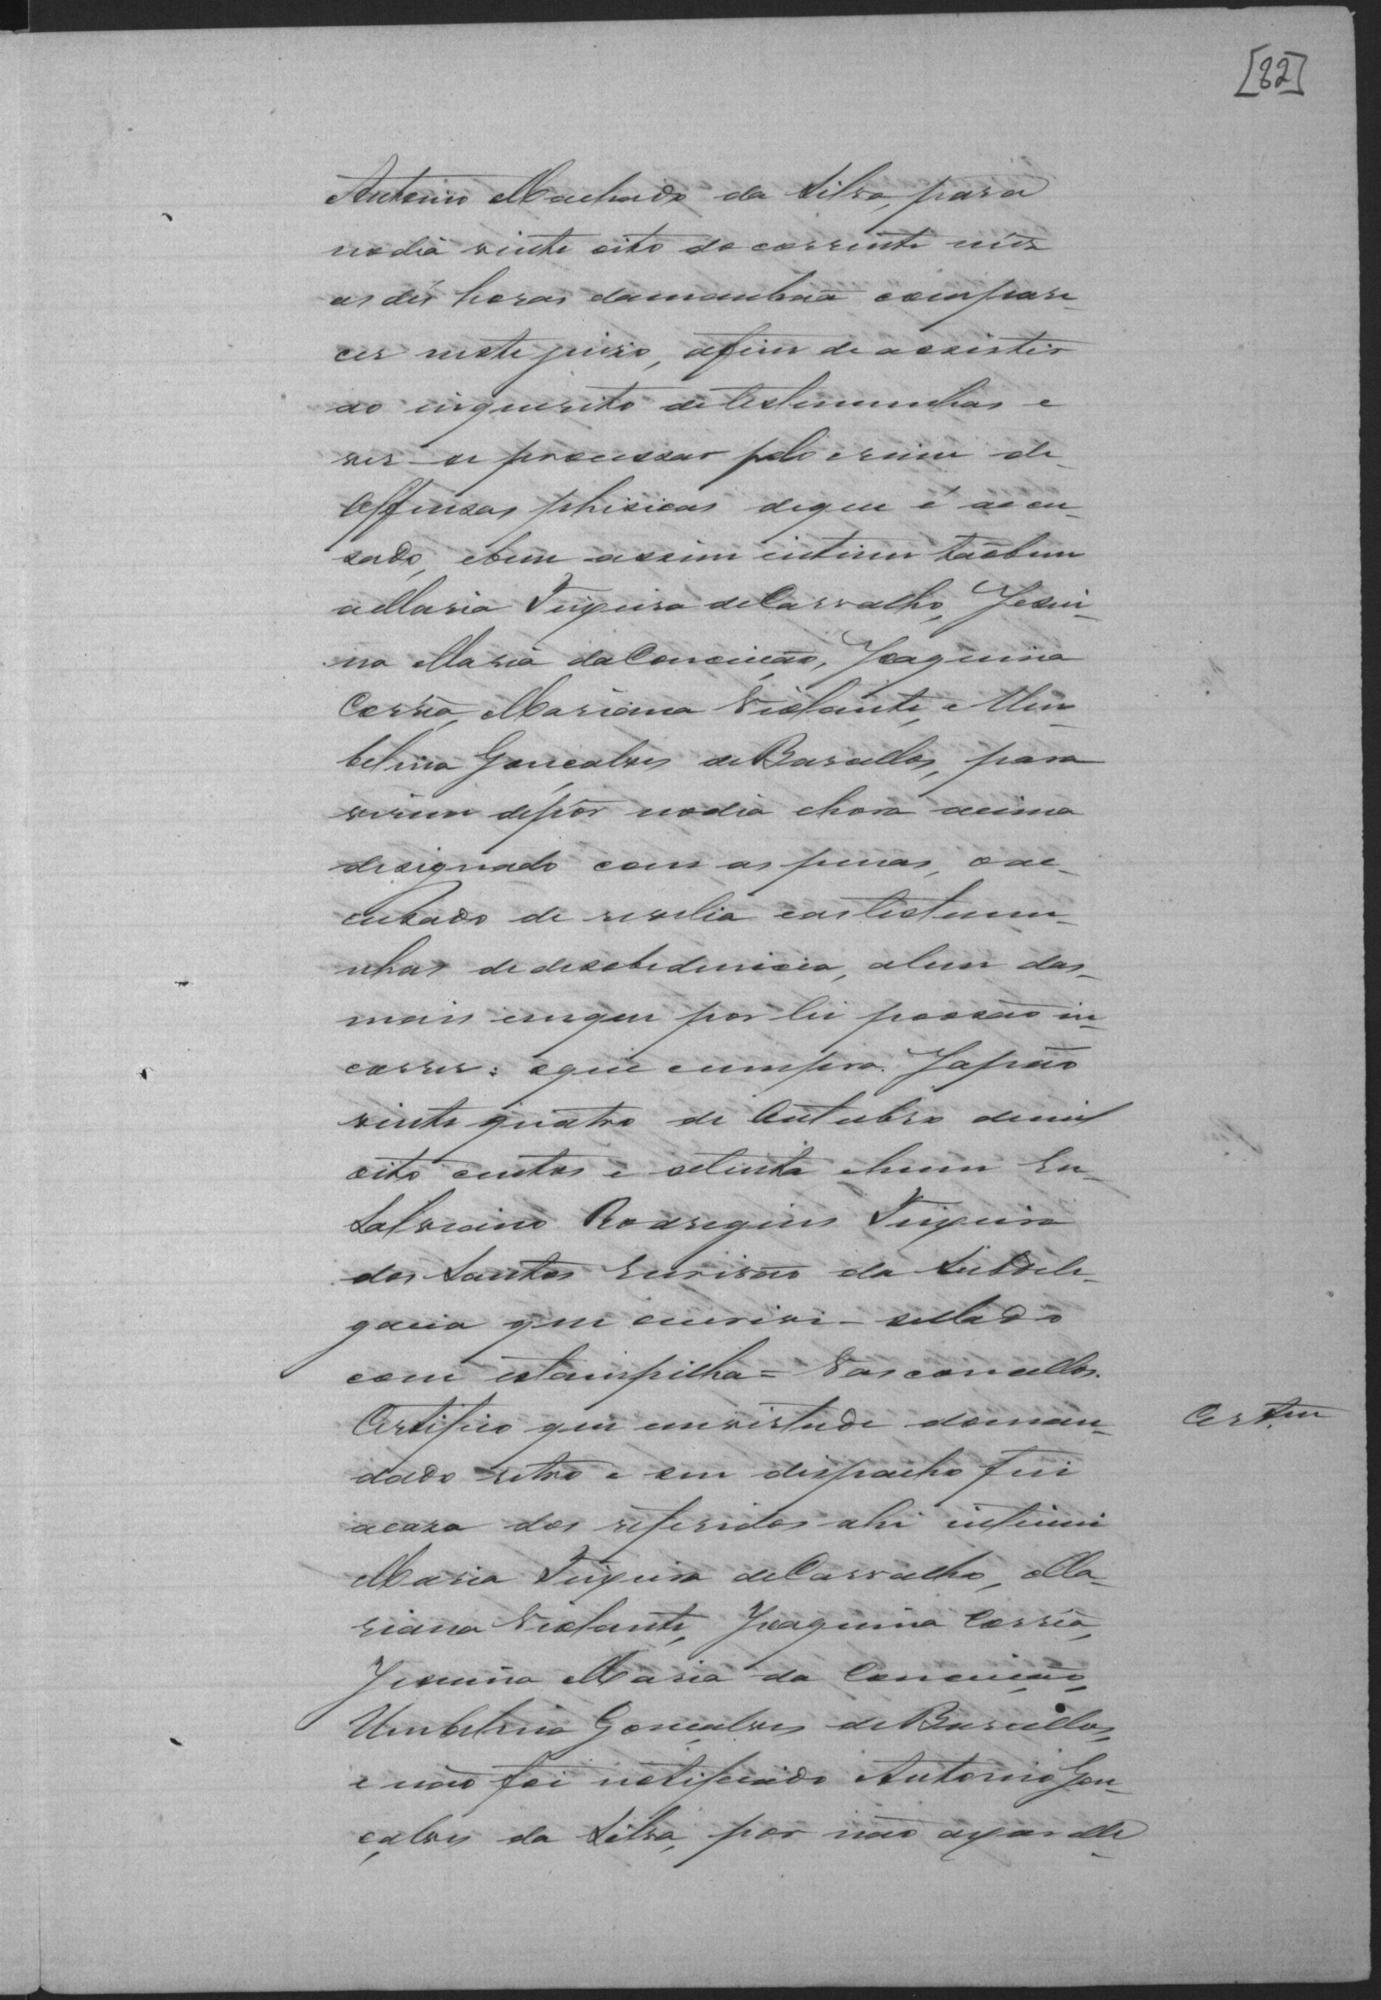 [82]
Antonio Machado da Silva, para
nodia vinte oito do corrente mês
as dés horas damanhaã compare-
cer neste juiso, afim de assistir
ao inquerito detestemunhas e
ver-se processar pelo crime de
Offensas phisicas deque é accu-
sado, ebem assim intimei taõbem
aMaria Teixeira deCarvalho, Jesui-
na Maria daConceição, Joaquina
Corrêa, Mariana Violante, e Um-
belina Gonçalves deBarcellos, para
virem depôr nodia ehora acima
designado com as penas, oac-
cusado de revelia eastestemu-
nhas dedesobediencia, alem das
mais emque por lei possão in-
correr: oque cumpra. Japão
vinte quatro de Outubro demil
oito centos e setenta ehum Eu
Salvecino Rodrigues Teixeira
dos Santos Escrivão da Subdele-
gacia que escrevi - sellado
com estampilha = Vasconcellos.
Certifico que emvirtude doman-
Certm
dado retro e seu dispacho fui
acasa dos referidos ahi intimei
Maria Teixeira deCarvalho, Ma-
riana Violante, Joaquina Corrêa,
Jesuina Maria da Conceição,
Umbelina Gonçalves deBarcellos,
e não foi notificado Antonio Gon-
çalves da Silva, por não axar elle